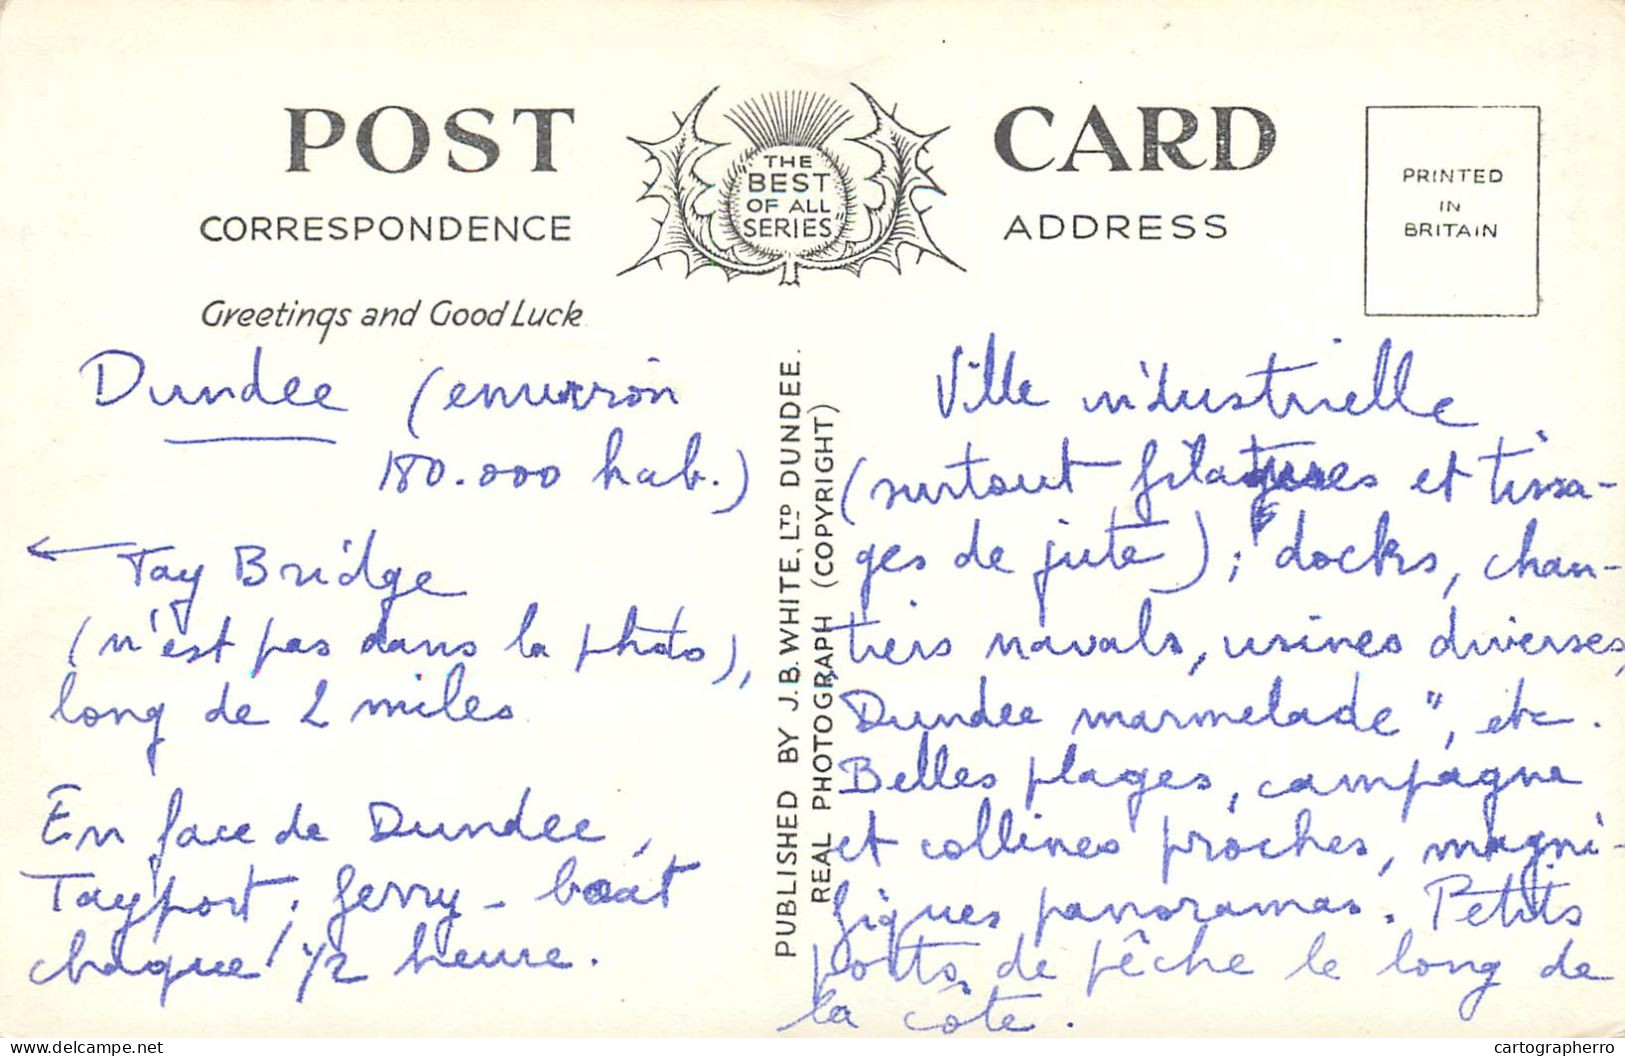 POST CARD
THE
"BEST
OF ALL
SERIES"
CORRESPONDENCE
ADDRESS
PRINTED
IN
BRITAIN
Greetings and Good Luck
Dundee (environ
180.000 hab.)
← Tay Bridge
(n'est pas dans la photo),
long de 2 miles
En face de Dundee,
Tayport; ferry-boat
chaque 1/2 heure.
PUBLISHED BY J.B. WHITE, LTD DUNDEE.
REAL PHOTOGRAPH (COPYRIGHT)
Ville industrielle
(surtout filatures et tissa-
ges de jute); docks, chan-
tiers navals, usines diverses,
Dundee marmelade", etc.
Belles plages, campagne
et collines proches, magni-
fiques panoramas. Petits
ports de pêche le long de
la côte.
www.delcampe.net
cartographerro